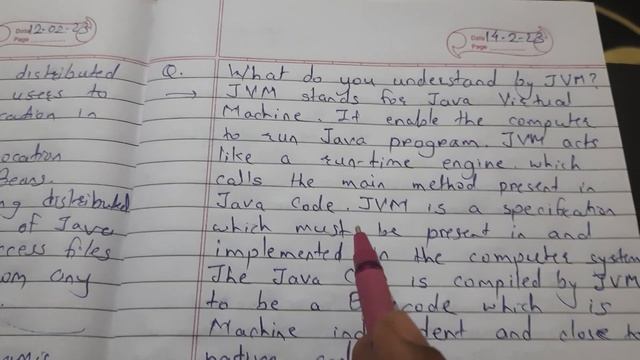 Date 12.02.23
Page
distributed
users to
cation in
ocation
Beans.
ng distributed
of Java
ccess files
om any
Date 14-2-23
Page
Q. What do you understand by JVM?
→ JVM stands for Java Virtual
Machine. It enable the computer
to run Java program. JVM acts
like a run-time engine which
calls the main method present in
Java Code. JVM is a specification
which must be present in and
implemented in the computer system
The Java is compiled by JVM
to be a code which is
Machine and close to